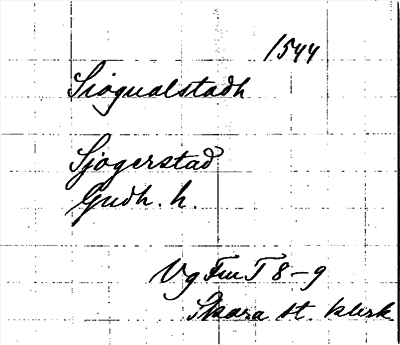 1544
Siøgualstadh
Sjögerstad
Gudh. h.
Vg FmT 8-9
Skara st. klerk